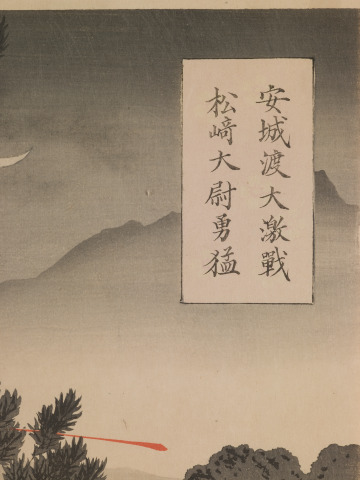 安城渡大激戰
松﨑大尉勇猛